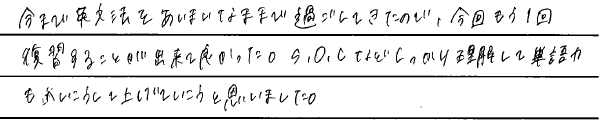 今まで英文法をあいまいなままで過ごしてきたので、今回もう1回
復習することが出来て良かった。S,O,Cなどしっかり理解して単語力
も 上げていこうと思いました。